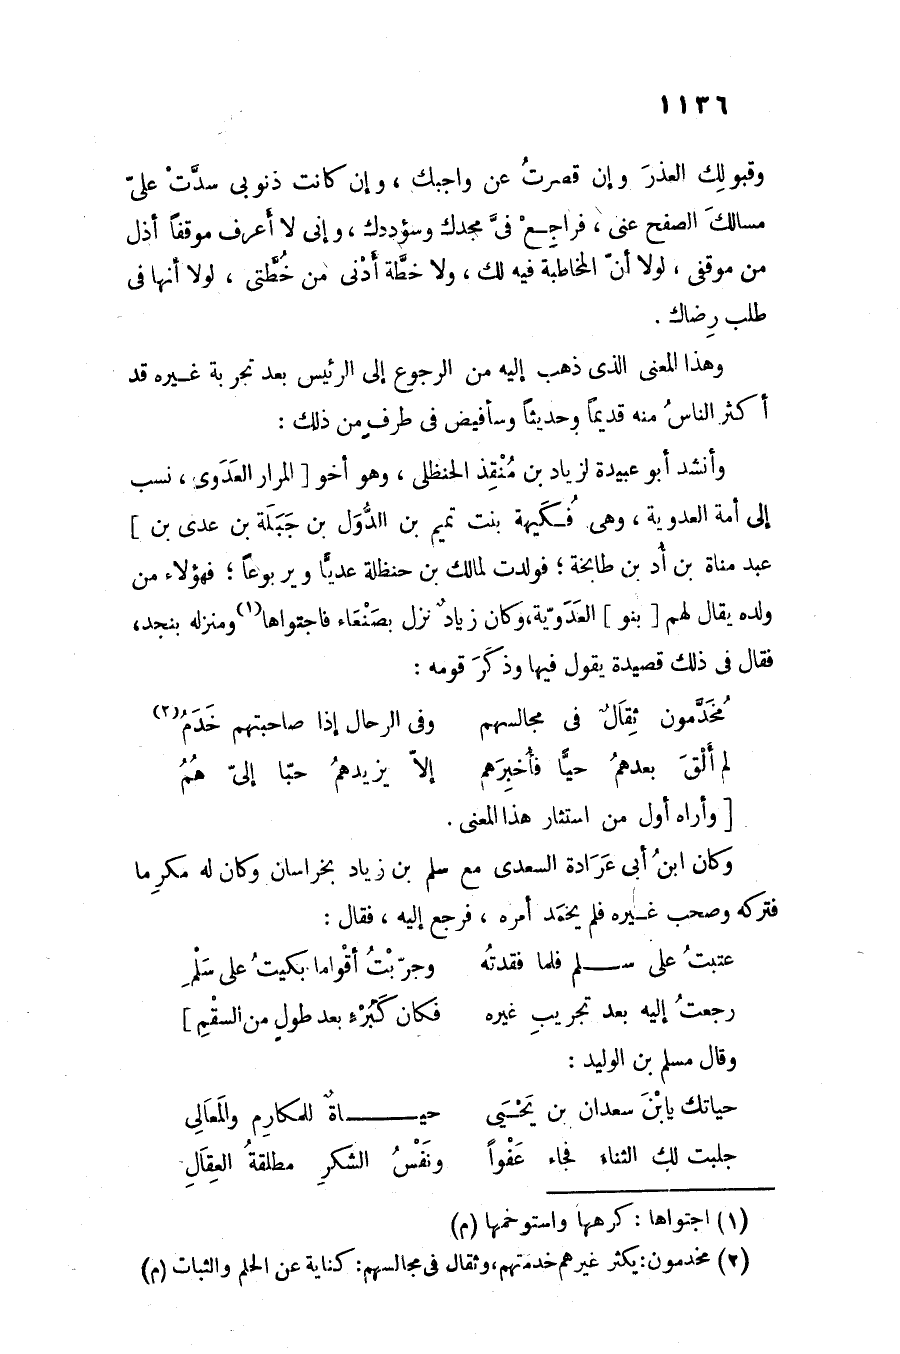 ١١٣٦
وقبولِك العذرَ وإن قصرتُ عن واجبك ، وإن كانت ذنوبى سدَّتْ علىّ
مسالكَ الصفح عنى ، فراجِعْ فىَّ مجدك وسؤددك ، وإنى لا أعرف موقفاً أذل
من موقفى ، لولا أنّ المخاطبة فيه لك ، ولا خطَّة أَدْنى من خُطَّتى ، لولا أنها فى
طلب رِضاك .
وهذا المعنى الذى ذهب إليه من الرجوع إلى الرئيس بعد تجربة غيره قد
أكثر الناسُ منه قديماً وحديثاً وسأفيض فى طرفٍ من ذلك :
وأنشد أبو عبيدة لزياد بن مُنْقِذ الحنظلى ، وهو أخو [ المرار العَدَوى ، نسب
إلى أمة العدوية ، وهى فُكَيهة بنت تميم بن الدُّوَل بن جَبَلَة بن عدى بن ]
عبد مناة بن أُد بن طابخة ؛ فولدت لمالك بن حنظلة عديًّا ويربوعاً ؛ فهؤلاء من
ولده يقال لهم [ بنو ] العَدَوِيّة، وكان زيادٌ نزل بصَنْعَاء فاجتواها(١) ومنزله بنجد،
فقال فى ذلك قصيدة يقول فيها وذكَرَ قومه :
مُخَدَّمون ثِقَالٌ فى مجالسهم وفى الرحال إذا صاحبتهم خَدَمُ(٢)
لم أَلْقَ بعدهمُ حيًّا فأُخبِرَهم إلاّ يزيدهمُ حبّا إلىّ هُمُ
[ وأراه أول من استثار هذا المعنى .
وكان ابنُ أبى عَرَادة السعدى مع سلم بن زياد بخراسان وكان له مكرِما
فتركه وصحب غيره فلم يحمَد أمره ، فرجع إليه ، فقال :
عتبتُ على سلم فلما فقدتُه وجرّبْتُ أقْواما بكيتُ على سَلْمِ
رجعتُ إليه بعد تجريبِ غيره فكان كَبُرْءٍ بعد طولٍ من السقْمِ ]
وقال مسلم بن الوليد :
حياتك يابْنَ سعدان بن يَحْيَى حياةٌ للمكارِمِ والمَعَالِى
جلبت لكَ الثناء فجاء عَفْواً ونَفْسُ الشكرِ مطلقةُ العِقَالِ
(١) اجتواها : كرهها واستوخمها (م)
(٢) مخدمون: يكثر غيرهم خدمتهم، وثقال فى مجالسهم: كناية عن الحلم والثبات (م)